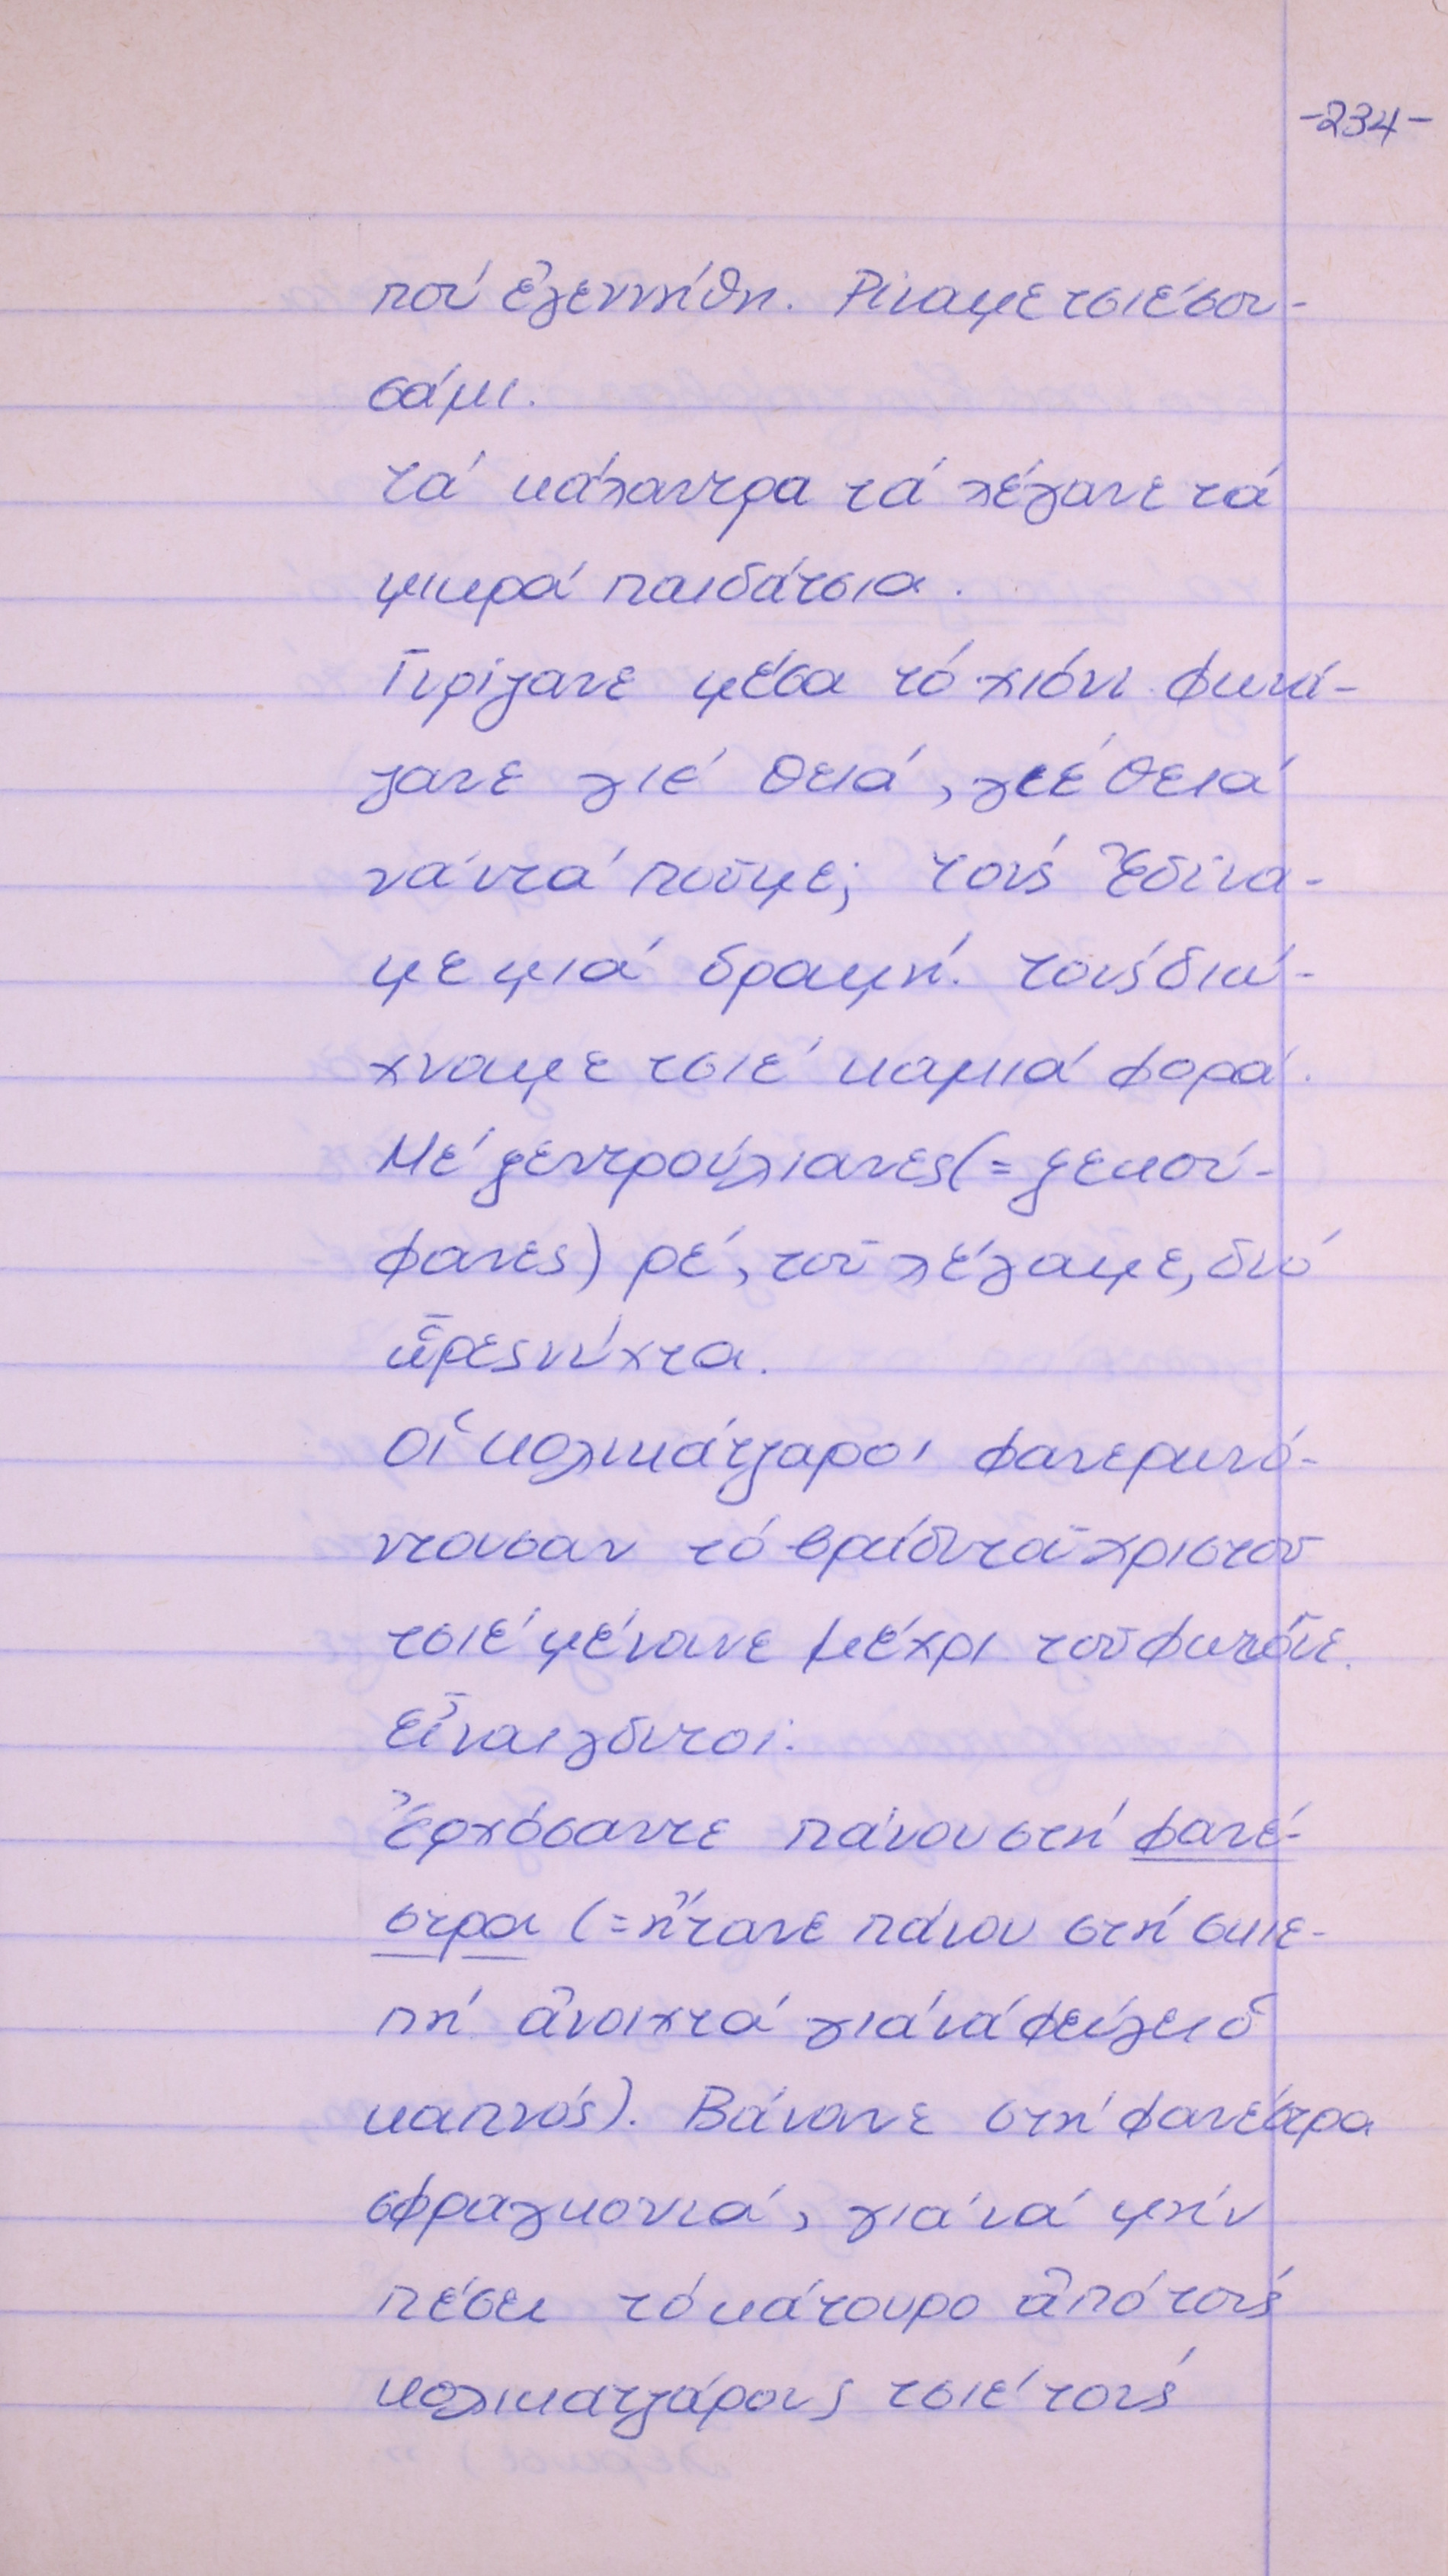 -234-
πού ἐγεννήθη. Ρίναμε τσιέ σου-
σάμι.
τά κάλαντρα τά λέγανε τά
μικρά παιδάτσια.
Γυρίζανε μέσα τό χιόνι φωνά-
ζανε γιέ θειά, γιέ θειά
νά ντά ποῦμε; τούς ἐδίνα-
με μιά δραμή. τούς διώ-
χναμε τσιέ καμιά φορά.
Μέ ξεντρούλιανες (= ξεκού-
φανες) ρέ, τοῦ λέγαμε, δυό
ὧρες νύχτα.
οἱ κολικάτζαροι φανερωνό-
ντουσαν τό βράδυ τοῦ χριστοῦ
τσιέ μένανε μέχρι τοῦ φωτός.
εἶναι γδυτοί.
Ἐρχόσαντε πάνου στή φανέ-
στρα (= ἤτανε πάνου στή σκε-
πή ἀνοιχτά γιά νά φεύγει ὁ
καπνός). Βάνανε στή φανέστρα
σφραγκονιά, γιά νά μήν
πέσει τό κάτουρο ἀπό τούς
κολικατζάρους τσιέ τούς